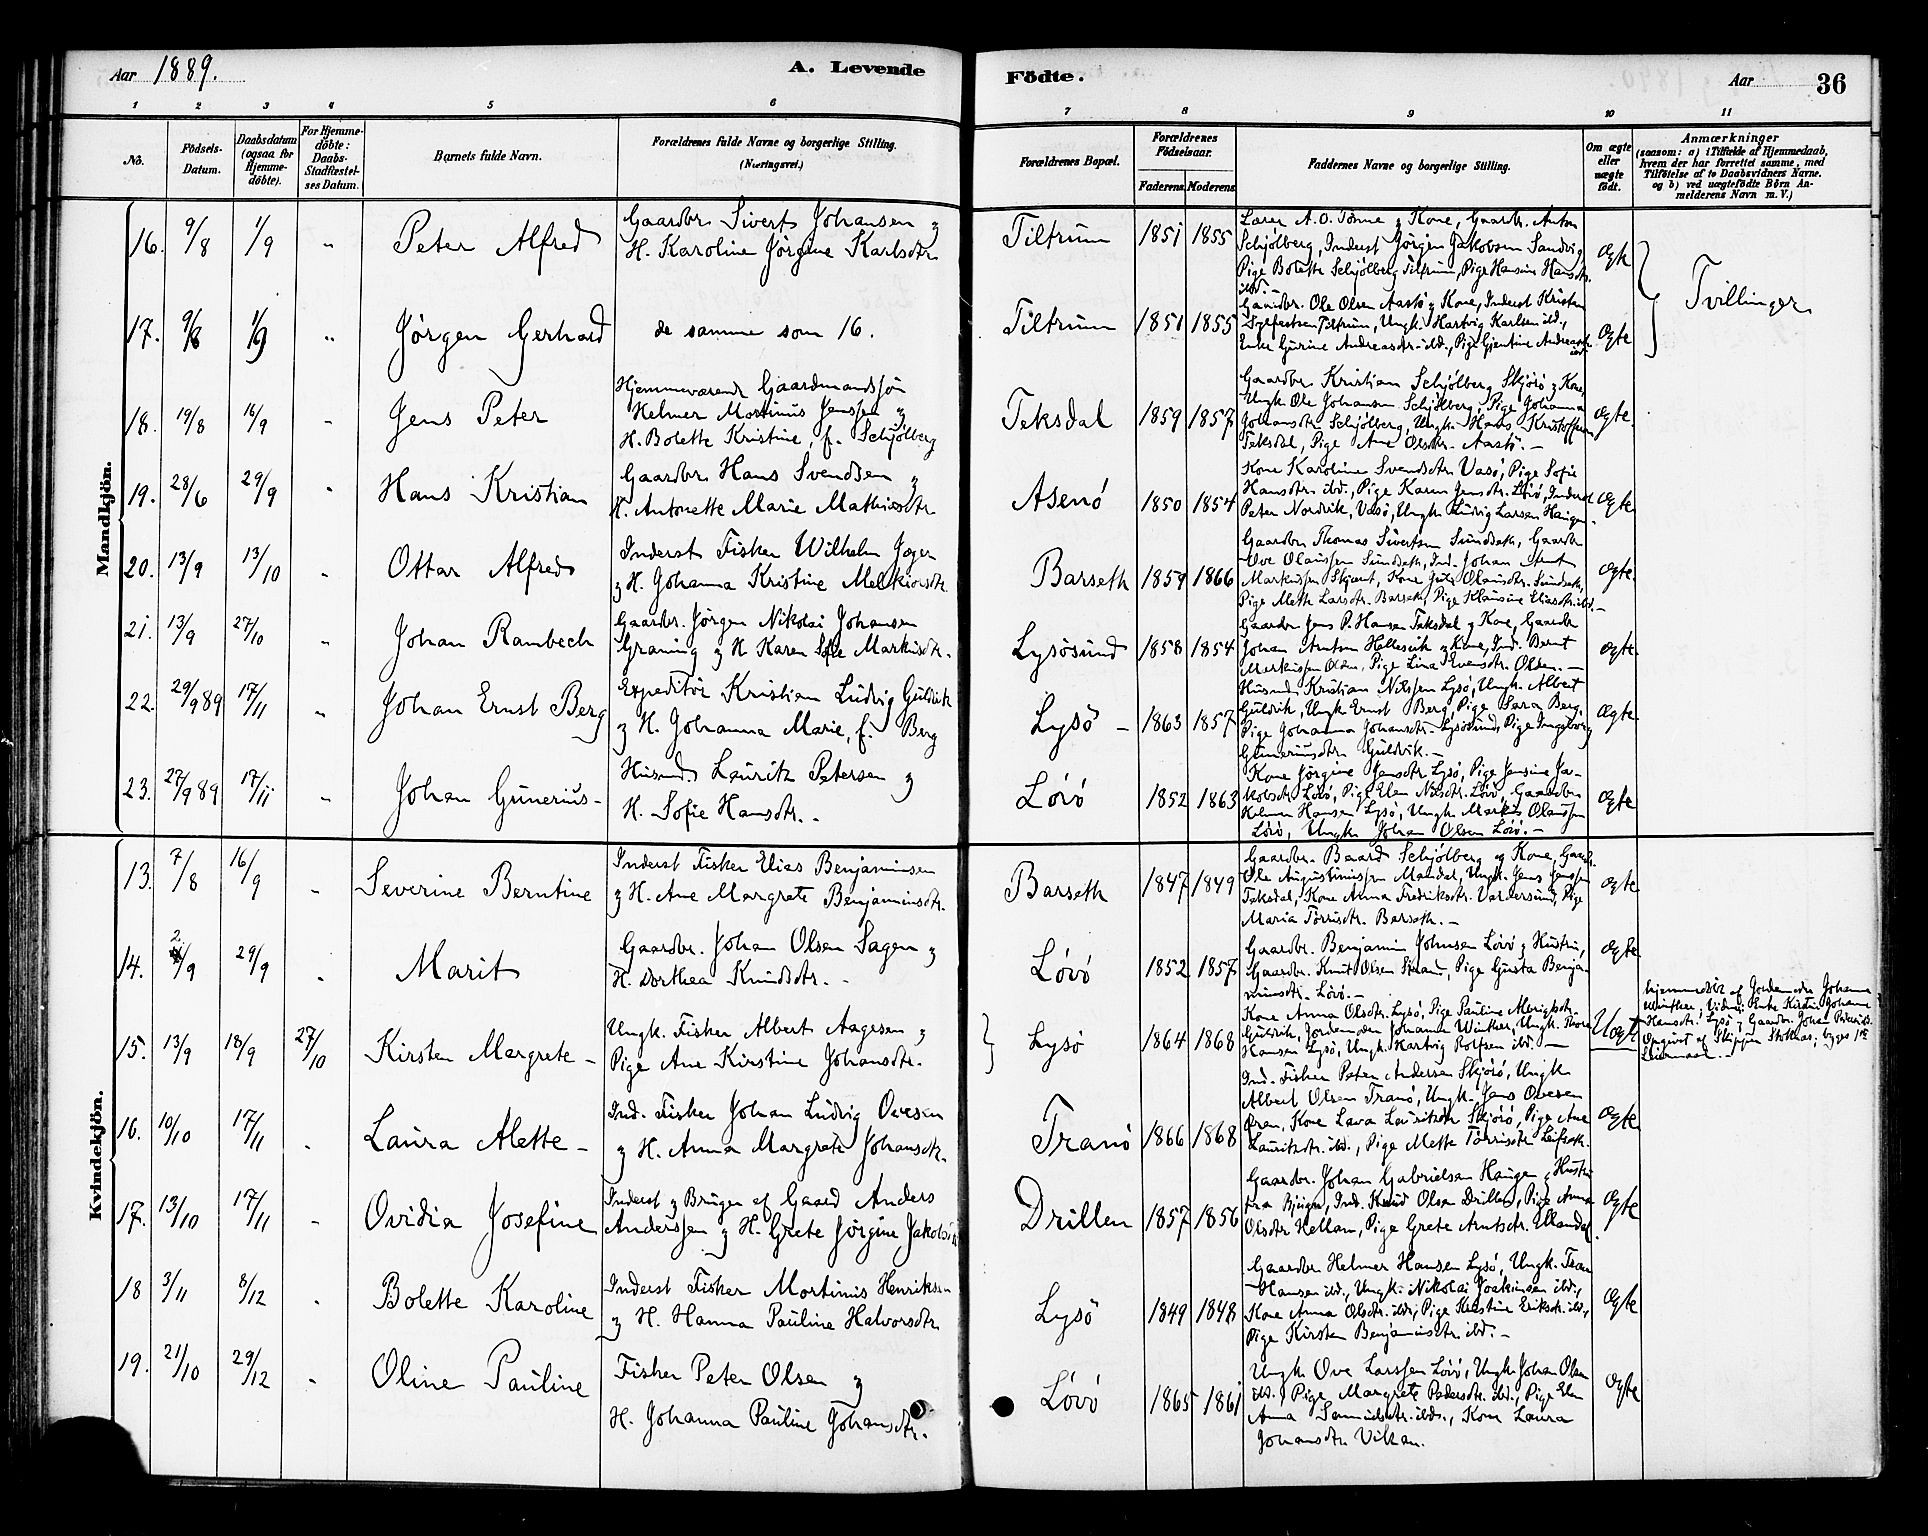 Aar 1889.
A. Levende
Födte.
Aar
36
1
2
3
4
5
6
7
8
9
10
11
No.
Födsels-
Datum.
Daabsdatum
(ogsaa for
Hjemme-
döbte).
For Hjemme-
döbte:
Daabs-
Stadfæstel-
ses Datum.
Barnets fulde Navn.
Forældrenes fulde Navne og borgerlige Stilling.
(Næringsvei.)
Forældrenes Bopæl.
Forældrenes
Födselsaar.
Faderens.
Moderens.
Faddernes Navne og borgerlige Stilling.
Om ægte
eller
uægte
födt.
Anmærkninger
(saasom: a) i Tilfælde af Hjemmedaab,
hvem der har forrettet samme, med
Tilföielse af to Daabsvidners Navne.
og b) ved uægtefödte Börn An-
melderens Navn m. V.)
Mandkjön.
16. 9/8 1/9 " Peter Alfred
Gaardbr. Sivert Johansen &
H. Karoline Jörgine Karlsdtr.
Tiltrum 1851 1855
Lærer A. O. Tönne & Kone, Gaardbr. Anton
Schjölberg, Inderst Jörgen Jakobsen Sandvig
Pige Bolette Schjölberg Tiltrum, Pige Hansine Hansdtr.
ibd. -
Ægte
Tvillinger
17. 9/8 1/9 " Jörgen Gerhard
de samme som 16.
Tiltrum 1851 1855
Gaardbr. Ole Olsen Aastö & Kone, Inderst Kristen
Sylfestsen Tiltrum, Ungk. Hartvig Karlsen ibd.,
Enke Gurine Andreasdtr. ibd., Pige Gjertine Andreasdtr.
ibd.
Ægte
18. 19/8 16/9 " Jens Peter
Hjemmeværende Gaardmandssön
Helmer Martinus Jenssen &
H. Bolette Kristine, f. Schjölberg
Teksdal 1859 1857
Gaardbr. Kristian Schjölberg Skjörö & Kone,
Ungk. Ole Johansen Schjölberg, Pige Johanna
Johansdtr. Schjölberg, Ungk. Hans Kristoffersen
Teksdal, Pige Ane Olsdtr. Aastö. -
ægte.
19. 28/6 29/9 " Hans Kristian
Gaardbr. Hans Svendsen &
H. Antonette Marie Mathiasdtr.
Asenö 1850 1854
Kone Karoline Svendsdtr. Vasö, Pige Sofie
Hansdtr. ibd., Pige Karen Jensdtr. Lövö, Inderst
Peter Nordvik, Vasö, Ungk. Ludvig Larsen Haugen.
ægte
20. 13/9 13/10 " Ottar Alfred
Inderst Fisker Wilhelm Jæger
& H. Johanna Kristine Melkiorsdtr.
Barseth 1859 1866
Gaardbr. Thomas Sivertsen Sundseth, Gaardbr.
Ove Olaussen Sundseth, Ind. Johan Arnt
Markussen, Kone Olausdtr. Sundseth,
Pige Mette Larsdtr. Barseth, Pige Klausine Eliasdtr. ibd. -
ægte.
21. 13/9 27/10 " Johan Rambech
Gaardbr. Jörgen Nikolai Johansen
Graning & H. Karen Sofie Markusdtr.
Lysösund 1858 1854
Gaardbr. Jens P. Hansen Teksdal & Kone, Gaardbr.
Johan Arntsen Hellesvik & Kone, Ind. Bernt
Markussen Olden, Pige Lina Evensdtr. Olden. -
ægte.
22. 29/9 89 17/11 " Johan Ernst Berg
Expeditör Kristian Ludvig Guldvik
& H. Johanna Marie, f. Berg
Lysö - 1863 1857
Husmd. Kristian Nilssen Lysö, Ungk. Albert
Guldvik, Ungk. Ernst Berg, Pige Sara Berg,
Pige Johanna Johansdtr. Lysösund, Pige Ingeborg
Gunneriusdtr. Guldvik. -
Ægte
23. 27/9 89 17/11 " Johan Gunerius -
Husmd. Lauritz Petersen &
H. Sofie Hansdtr. -
Lövö 1852 1863
Kone Jörgine Jensdtr. Lysö, Pige Jensine Ja-
kobsdtr. Lövö, Pige Elen Nilsdtr. Lövö, Gaardbr.
Helmer Hansen Lysö, Ungk. Markus Olaussen
Lövö, Ungk. Johan Olsen Lövö. -
Ægte
Kvindekjön.
13. 7/8 16/9 " Severine Berntine
Inderst Fisker Elias Benjaminsen
& H. Ane Margrete Benjaminsdtr.
Barseth 1847 1849
Gaardbr. Baard Schjölberg og Kone, Gaardbr.
Ole Augustinussen Mandal, Ungk. Jens Jenssen
Teksdal, Kone Anna Fredriksdtr. Valdersund, Pige
Maria Törrisdtr. Barseth. -
ægte
14. 2/9 29/9 " Marit
Gaardbr. Johan Olsen Sagen &
H. Dorthea Knudsdtr. -
Lövö 1852 1857
Gaardbr. Benjamin Johnsen Lövö & Hustru,
Gaardbr. Knut Olsen Strand, Pige Gusta Benja-
minsdtr. Lövö. -
ægte
15. 13/9 18/9 27/10 Kirsten Margrete -
Ungk. Fisker Albert Aagesen &
Pige Ane Kirstine Johansdtr.
Lysö 1864 1868
Kone Anna Olsdtr. Lysö, Pige Pauline Albrigtsdtr.
Guldvik, Jordemoder Johanna Winther, Ungk. Thore
Hansen Lysö, Ungk. Hartvig Rolfsen ibd. -
Uægte
hjemmedöbt af Jordemoder Johanna
Winther; Vidner: Enke Kirstie Johanne
Hansdtr. Lysö & Gaardbr. Johan
Opgivet af Skipper; begges 1ste
Leiermaal. -
16. 10/10 17/11 " Laura Alette -
Ind. Fisker Johan Ludvig Ovesen
& H. Anna Margrete Johansdtr.
Tranö 1866 1868
Ind. Fisker Peter Andersen Skjörö, Ungk.
Albert Olsen Tranö, Ungk. Jens Ovesen
Kone Lava Lauritsdtr. Skjörö, Pige Ane
Lauritsdtr. ibd., Pige Mette Törrisdtr.
ægte
17. 13/10 17/11 " Ovidia Josefine
Inderst & Bruger af Gaard Anders
Anderssen & H. Grete Jörgine Jakobsdtr.
Drillen 1857 1856
Gaardbr. Johan Gabrielsen Haugen & Hustru
fra Bjugn, Ind. Knud Olsen Drillen, Pige Anna
Olsdtr. Hellan, Pige Grete Arntsdtr. Mandal.
ægte
18 3/11 8/12 " Bolette Karoline
Inderst Fisker Mortinus Henriksen
& H. Hanna Pauline Halvorsdtr.
Lysö 1849 1848
Gaardbr. Helmer Hansen Lysö, Ungk.
Hansen ibd., Ungk. Nikolai Joakimsen ibd.,
Kone Anna Olsdtr. ibd., Pige Kjerstine Eriksdtr. ibd.,
Pige Kirsten Benjaminsdtr. ibd. -
ægte
19. 21/10 29/12 " Oline Pauline
Fisker Peter Olsen &
H. Johanna Pauline Johansdtr.
Lövö 1865 1861
Ungk. Ove Larssen Lövö, Ungk. Johan Olsen
ibd., Pige Margrete Pedersdtr. ibd., Pige Elen
Anna Samuelsdtr. ibd., Kone Laura
Johansdtr. Vikan.
ægte